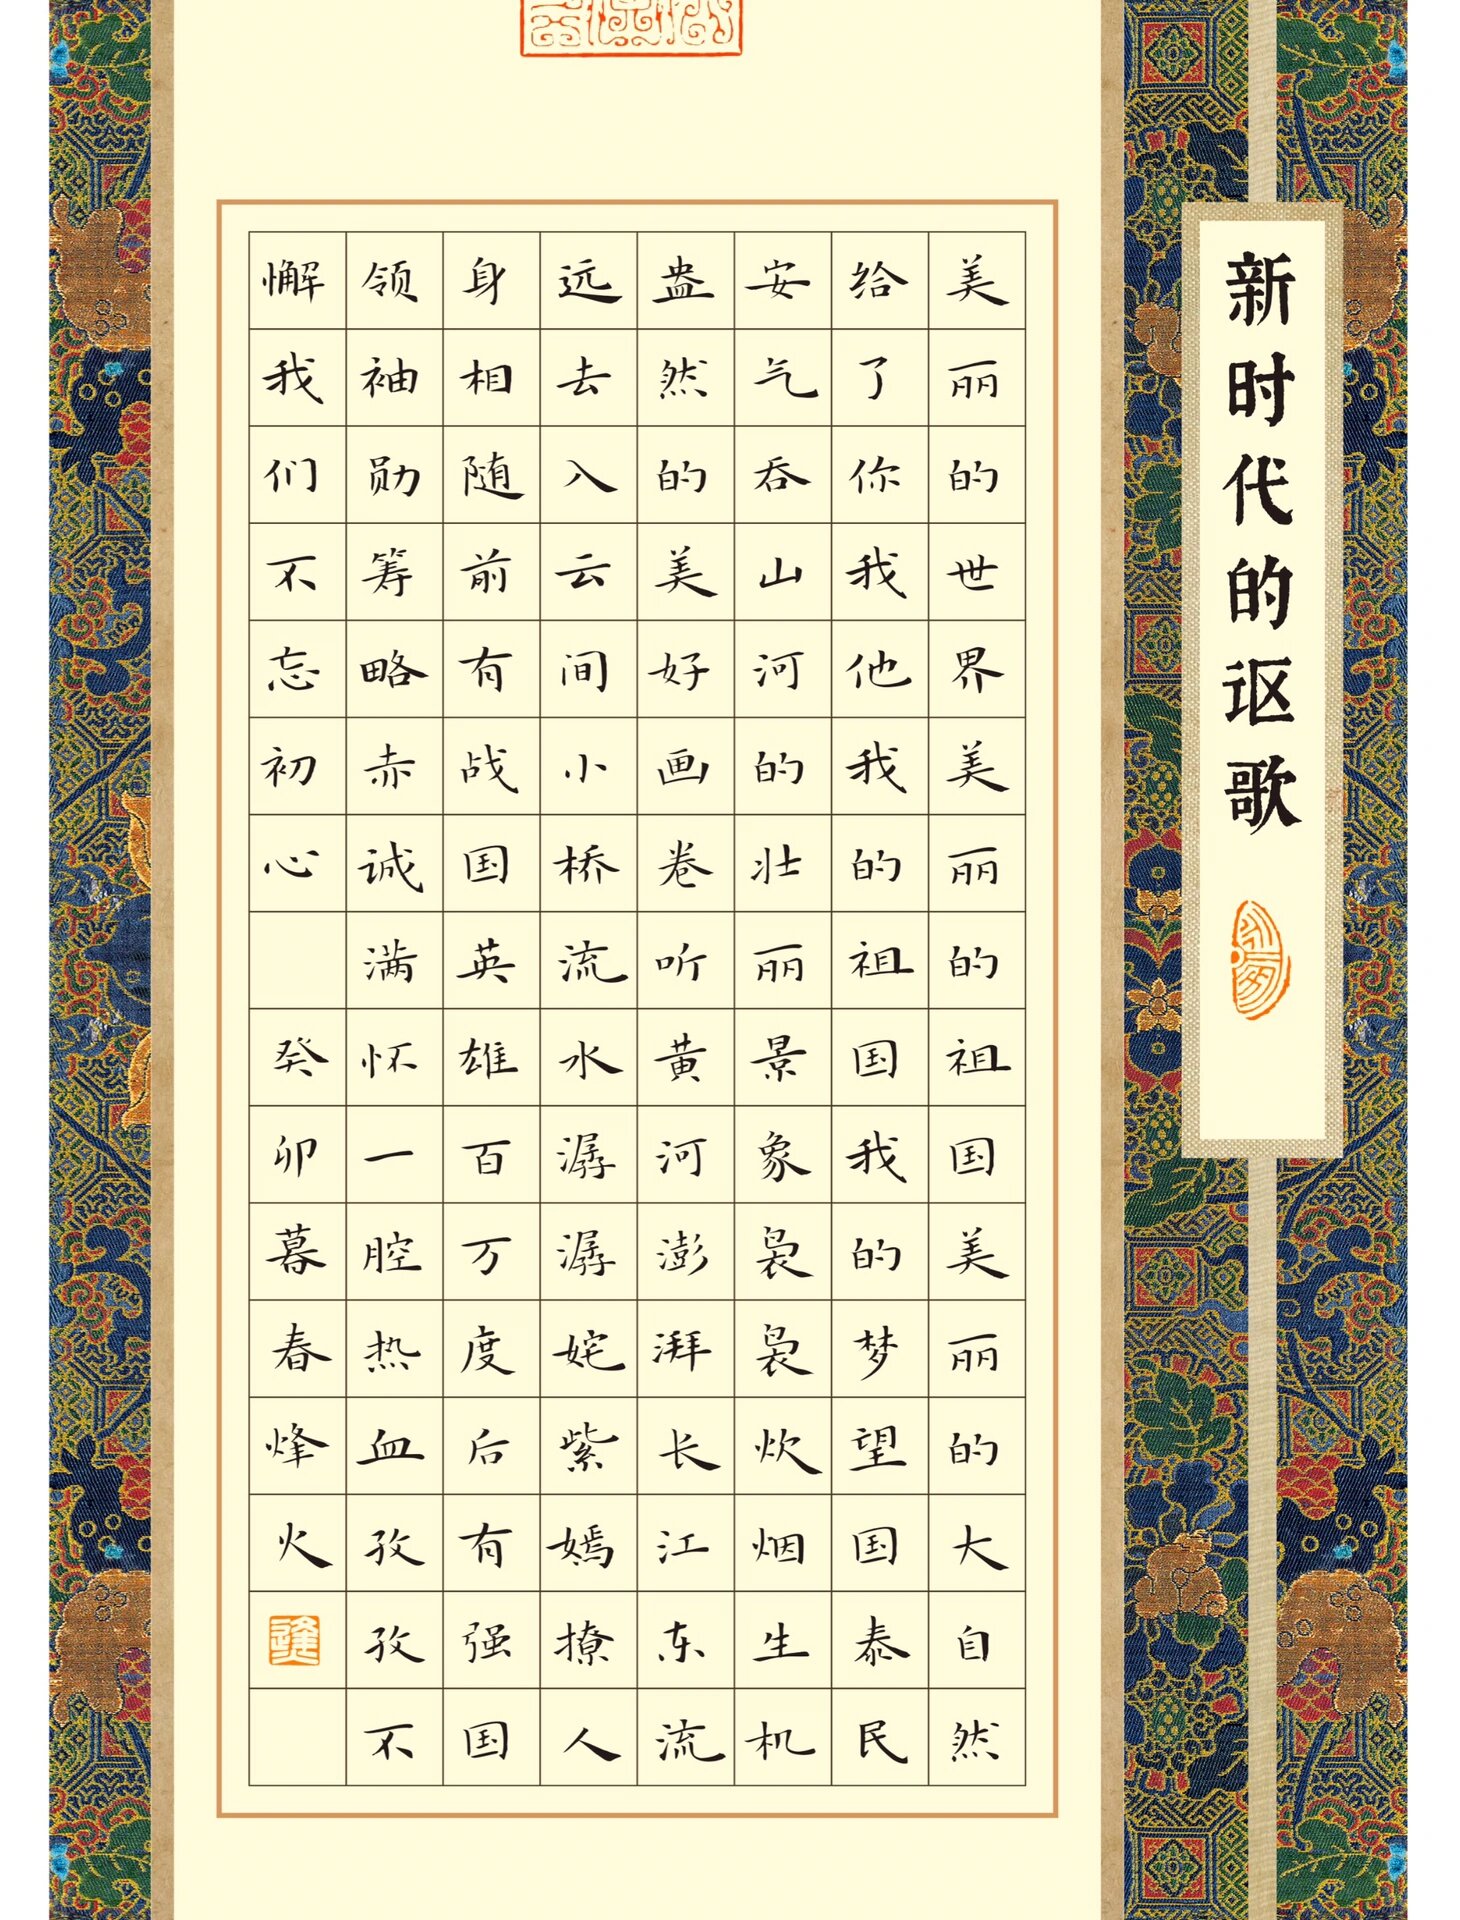 新时代的讴歌
美丽的世界美丽的祖国美丽的大自然
给了你我他我的祖国我的梦望国泰民
安气吞山河的壮丽景象袅袅炊烟生机
盎然的美好画卷听黄河澎湃长江东流
远去入云间小桥流水潺潺姹紫嫣撩人
身相随前有战国英雄百万度后有强国
领袖勋筹略赤诚满怀一腔热血孜孜不
懈我们不忘初心 癸卯暮春烽火